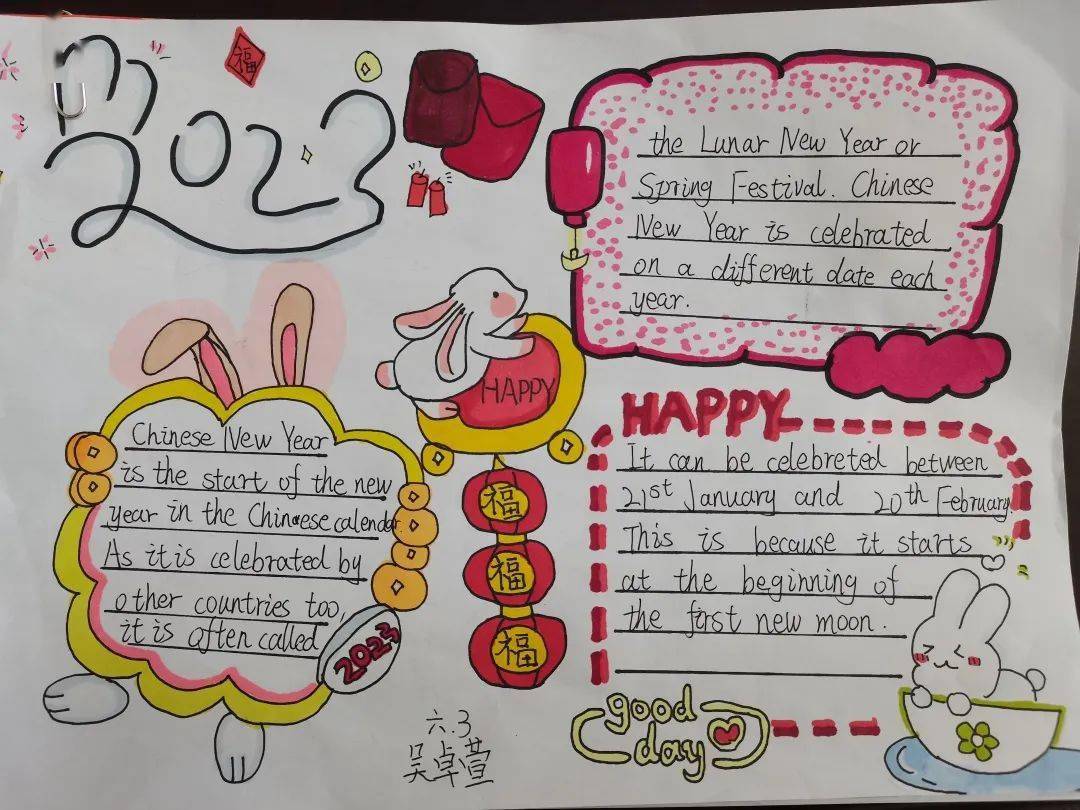 2023
福
Chinese New Year
is the start of the new
year in the Chinese calendar.
As it is celebrated by
other countries too,
it is often called
2023
the Lunar New Year or
Spring Festival. Chinese
New Year is celebrated
on a different date each
year.
HAPPY
福
福
福
HAPPY
It can be celebreted between
21st January and 20th February.
This is because it starts
at the beginning of
the first new moon.
good
day
六.3
吴卓萱